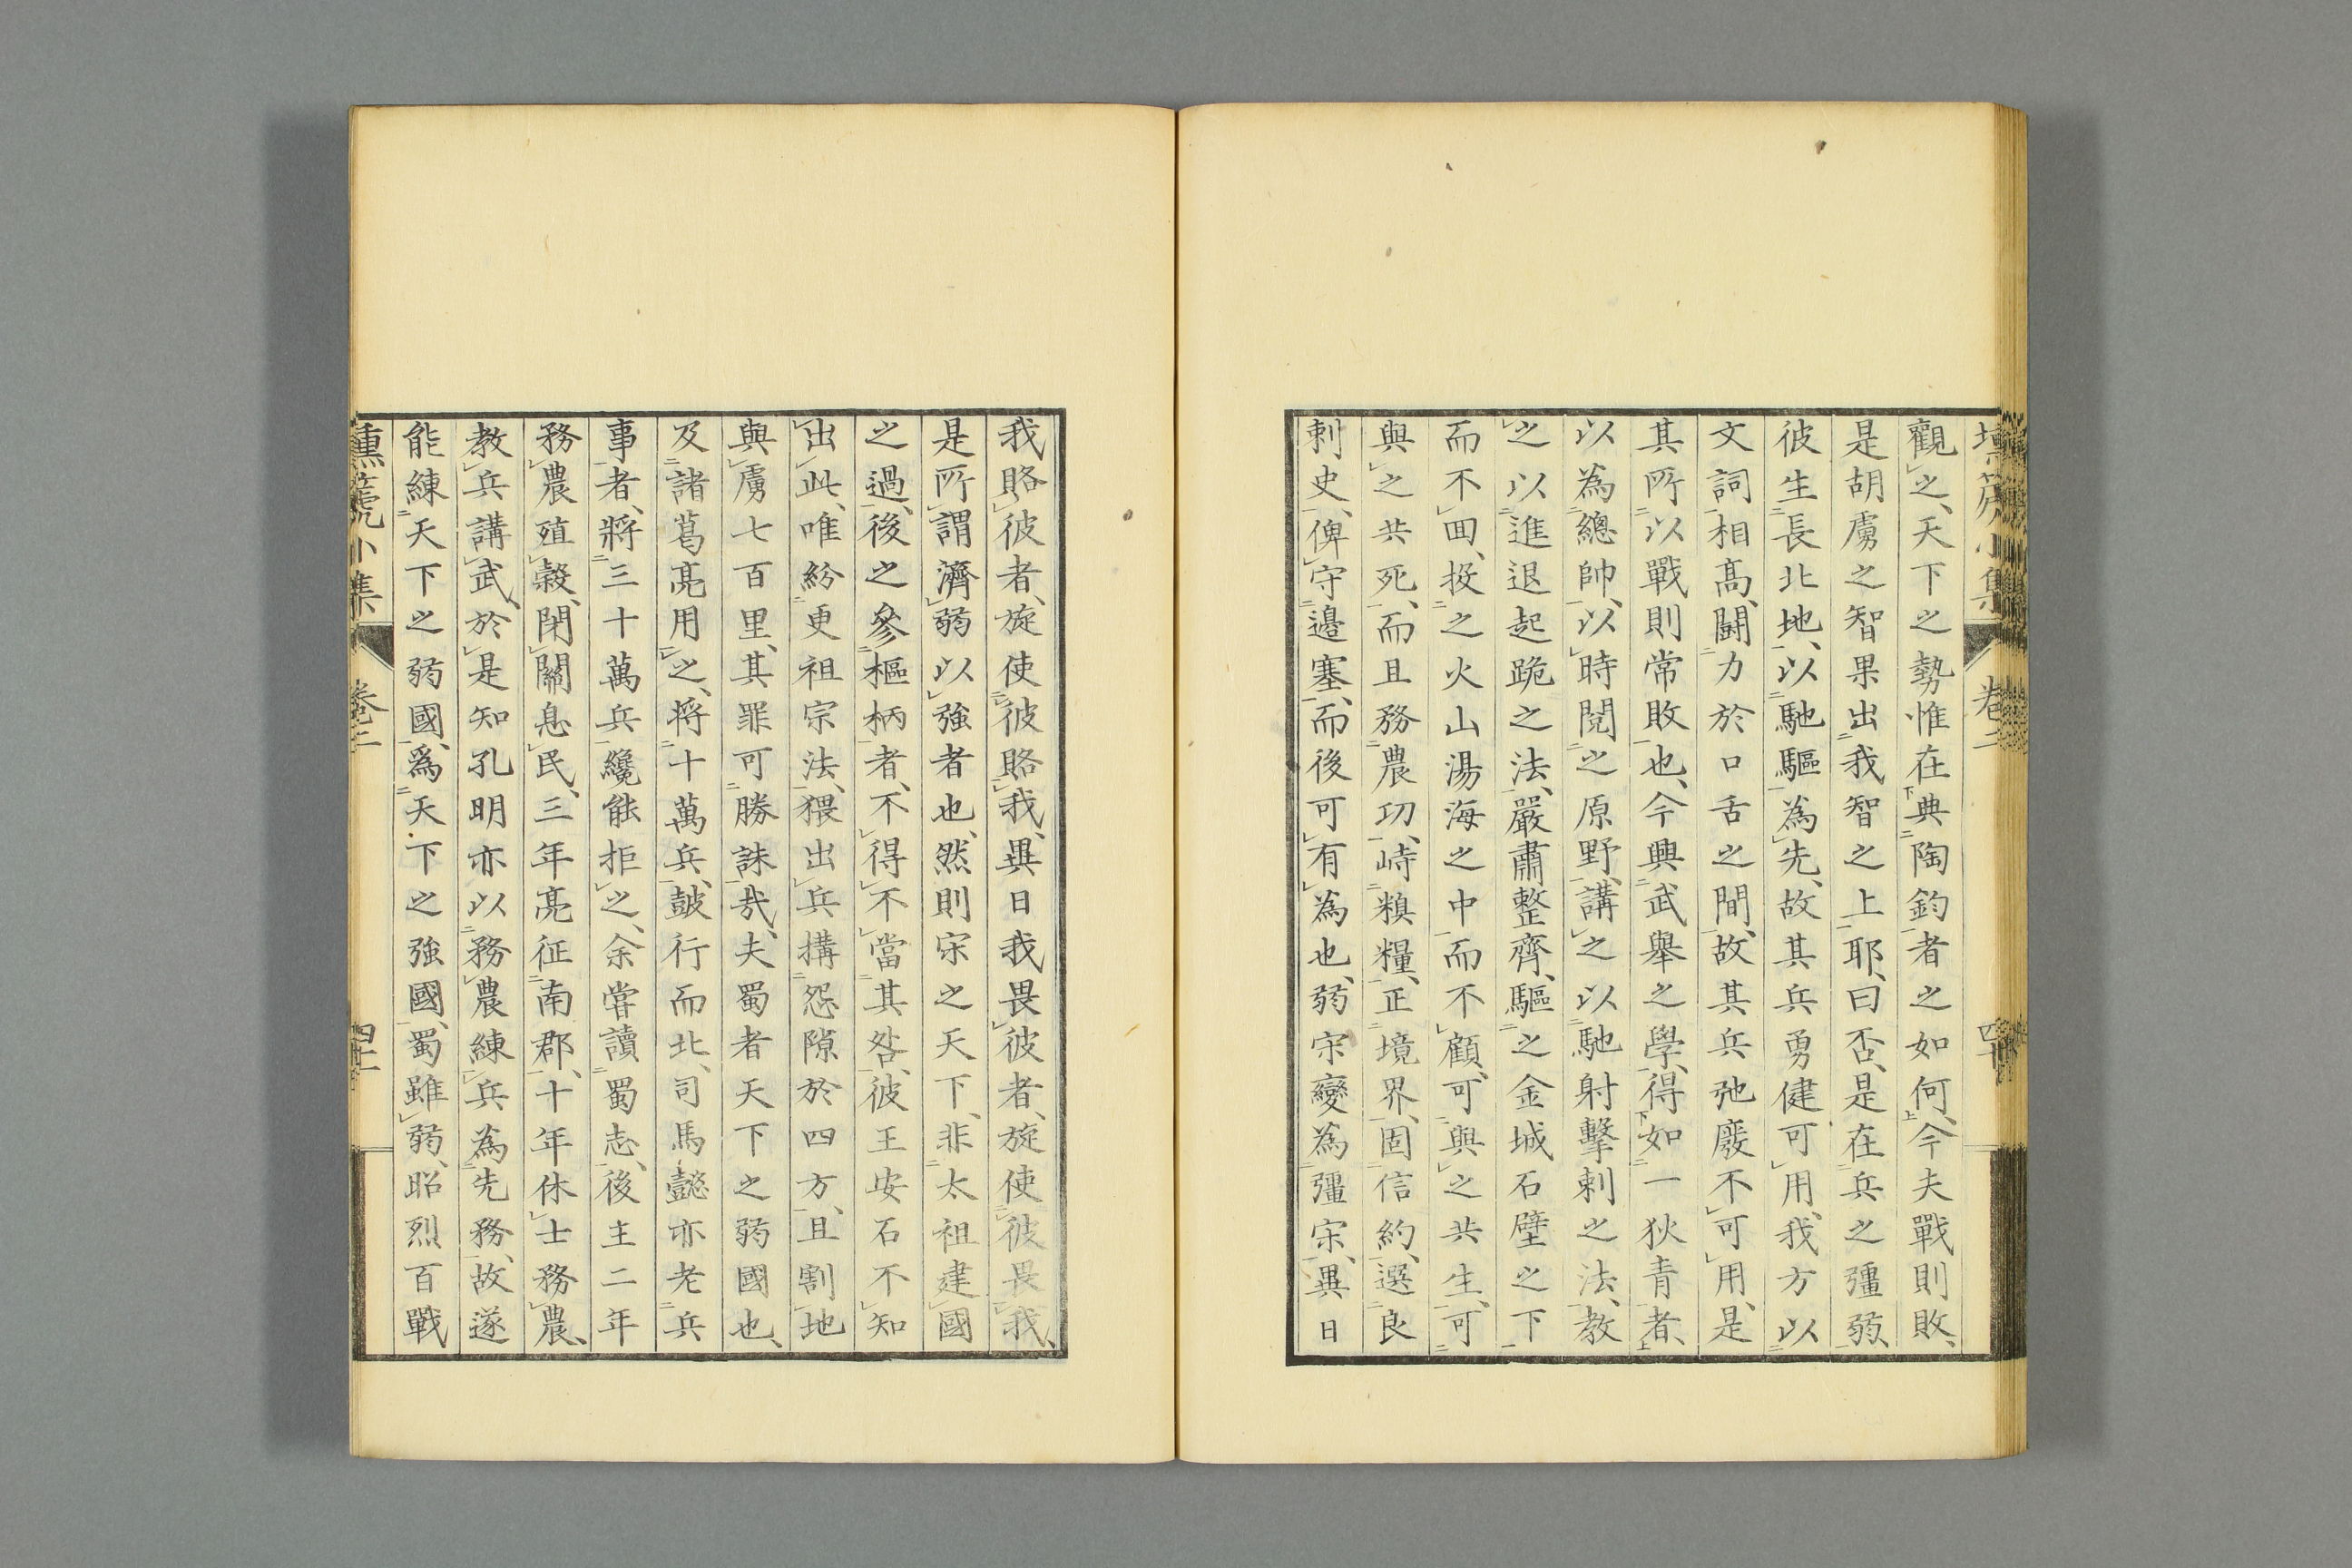 觀之、天下之勢惟在典陶鈞者之如何、今夫戰則敗、
是胡虜之智果出我智之上耶、曰否、是在兵之彊弱、
彼生長北地、以馳驅為先、故其兵勇健可用、我方以
文詞相高、鬪力於口舌之間、故其兵弛廢不可用、是
其所以戰則常敗也、今興武舉之學、得如一狄青者、
以為總帥、以時閱之原野、講之以馳射擊刺之法、教
之以進退起跪之法、嚴肅整齊、驅之金城石壁之下
而不回、投之火山湯海之中而不顧、可與之共生、可
與之共死、而且務農功、峙糗糧、正境界、固信約、選良
刺史、俾守邊塞、而後可有為也、弱宋變為彊宋、異日
我賂彼者、旋使彼賂我、異日我畏彼者、旋使彼畏我、
是所謂濟弱以強者也、然則宋之天下、非太祖建國
之過、後之參樞柄者、不得不當其咎、彼王安石不知
出此、唯紛更祖宗法、猥出兵搆怨隙於四方、且割地
與虜七百里、其罪可勝誅哉、夫蜀者天下之弱國也、
及諸葛亮用之、將十萬兵、鼓行而北、司馬懿亦老兵
事者、將三十萬兵、纔能拒之、余嘗讀蜀志、後主二年
務農殖穀、閉關息民、三年亮征南郡、十年休士務農、
教兵講武、於是知孔明亦以務農練兵為先務、故遂
能練天下之弱國、爲天下之強國、蜀雖弱、昭烈百戰
小集
卷二